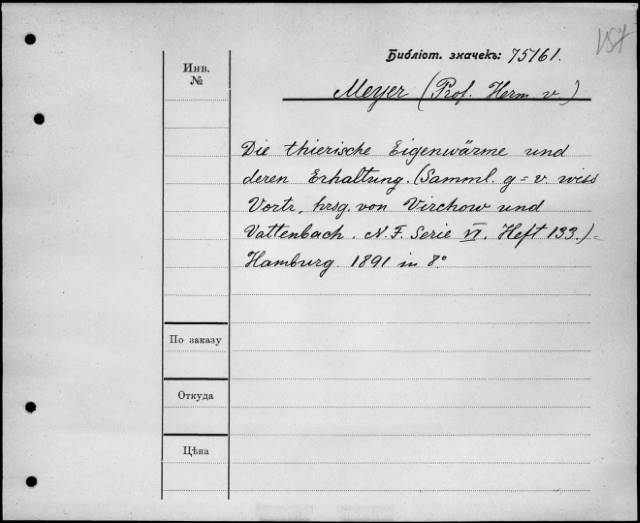 Библіот. значекъ: 75161.
Инв.
№
Meyer (Prof. Herm v.)
Die thierische Eigenwärme und
deren Erhaltung. (Samml. g=v. wiss
Vortr, hrsg. von Virchow und
Vattenbach. N. F. Serie VI. Heft 133.)=
Hamburg. 1891 in 8°
По заказу
Откуда
Цѣна